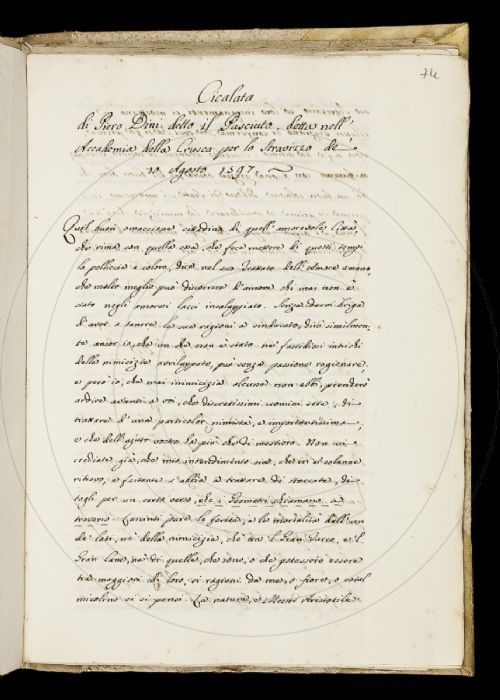 74
Cicalata
di Piero Dini detto il Pasciuto, detta nell'
Accademia della Crusca per lo Stravizzo de
10 Agosto 1597
Quel buon omaccione cittadin di quell' amorevole Città,
che rima con quella cosa, che fece mettere di questi tempi
la pelliccia a coloro, dice nel suo Trattato dell' Amore umano,
che molto meglio può discorrere d'amore chi mai non è
stato negli amorosi lacci incalappiato. Senza darmi briga
d'aver a tenere le sue ragioni a sindacato, dirò similmen-
te ancor io, che un che non è stato ne' fastidiosi intrichi
delle nimicizie avviluppato, può senza passione ragionare.
e però io, che mai inimicizia alcuna non ebbi, prenderò
ardire avanti a voi, che discretissimi uomini sete, di
trattare d'una particolar nimistà, e importantissima
e che dell' ajuto vostro ha più che di mestiero. Non vi
crediate già, che mio intendimento sia, che in sì solazze
ritrovo, e festante s'abbia a trattare di stoccate, di
tagli per un certo verso, che i Geometri chiamano a
traverso. Larcinsi pure la ferità, e la mortalità dall' un
de' lati, nè della nimicizia, che tra 'l Gran Turco, e 'l
Gran Cane, nè di quella, che sono, o che potessero essere
tra maggiori di loro, si ragioni da me, o fiore, o cotal
micolino ci si pensi. La natura, e Messer Aristotile